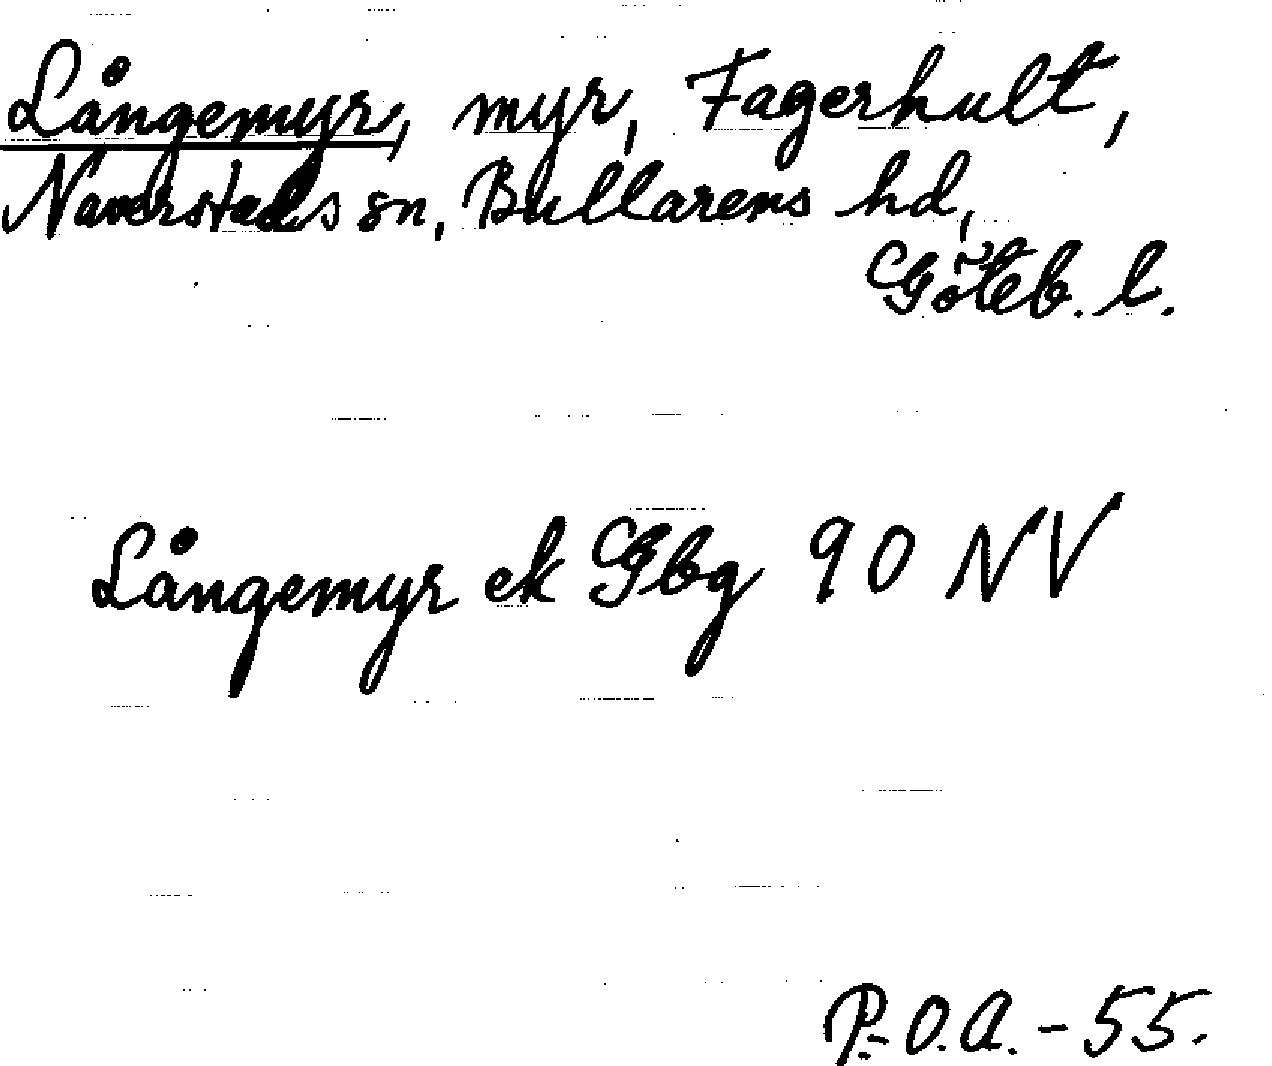 Långemyr, myr, Fagerhult,
Naverstads sn, Bullarens hd,
Göteb. l.
Långemyr ek Gbg 90 NV
P.O.A. - 55.